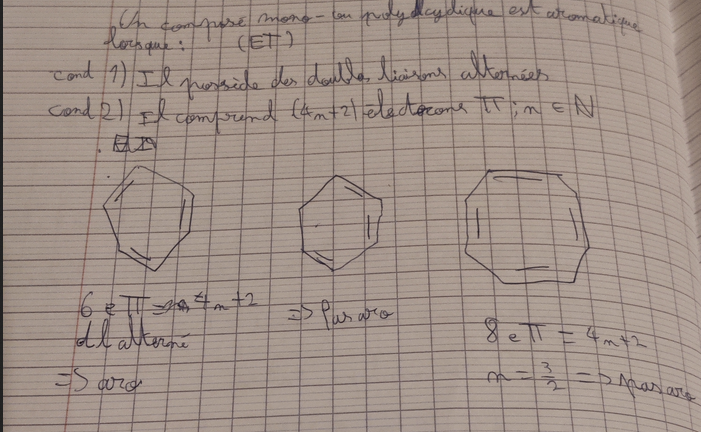 Un composé mono- ou polycyclique est aromatique
lorsque : (ET)
cond 1) Il possède des doubles liaisons alternées
cond 2) Il comprend (4n+2) électrons π ; n ∈ N
6 e π = 4n+2
dl alterné
=> aro
=> Pas aro
8 e π = 4n+2
n = 3/2 => pas aro